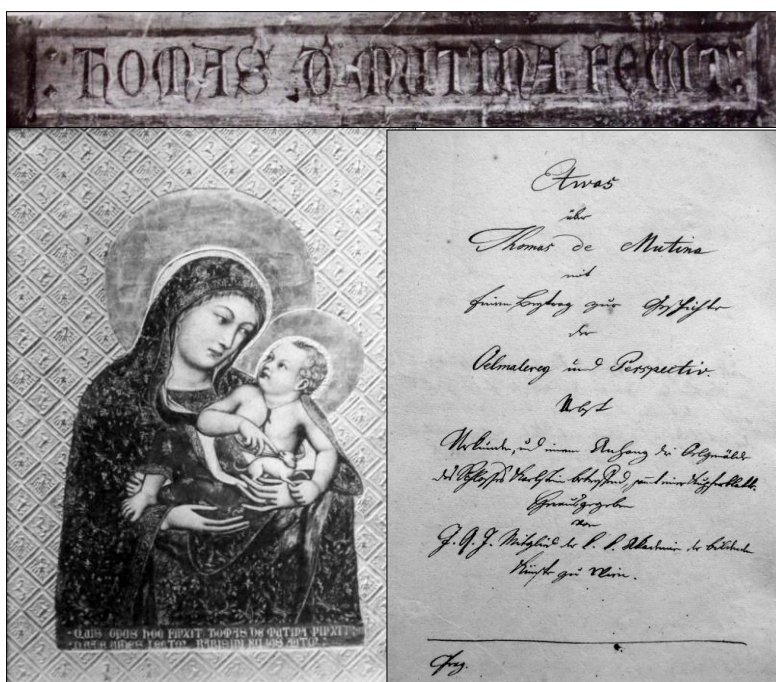 : THOMAS D MUTINA FECIT :
· QUIS OPUS HOC FINXIT THOMAS DE MUTINA PINXIT ·
QUALE VIDES LECTOR RARISINI FILIUS AUTOR ·
Etwas
über
Thomas de Mutina
mit
einem Beytrag zur Geschichte
der
Oelmalerey und Perspectiv.
Nebst
Urkunden, und einem Anhang die Oelgemälde
des Schloßes Karlstein betreffend, samt einer Kupferblatt.
Herausgegeben
von
J. Q. J. Mitglied der k. k. Akademie der bildenden
Künste zu Wien.
Prag.